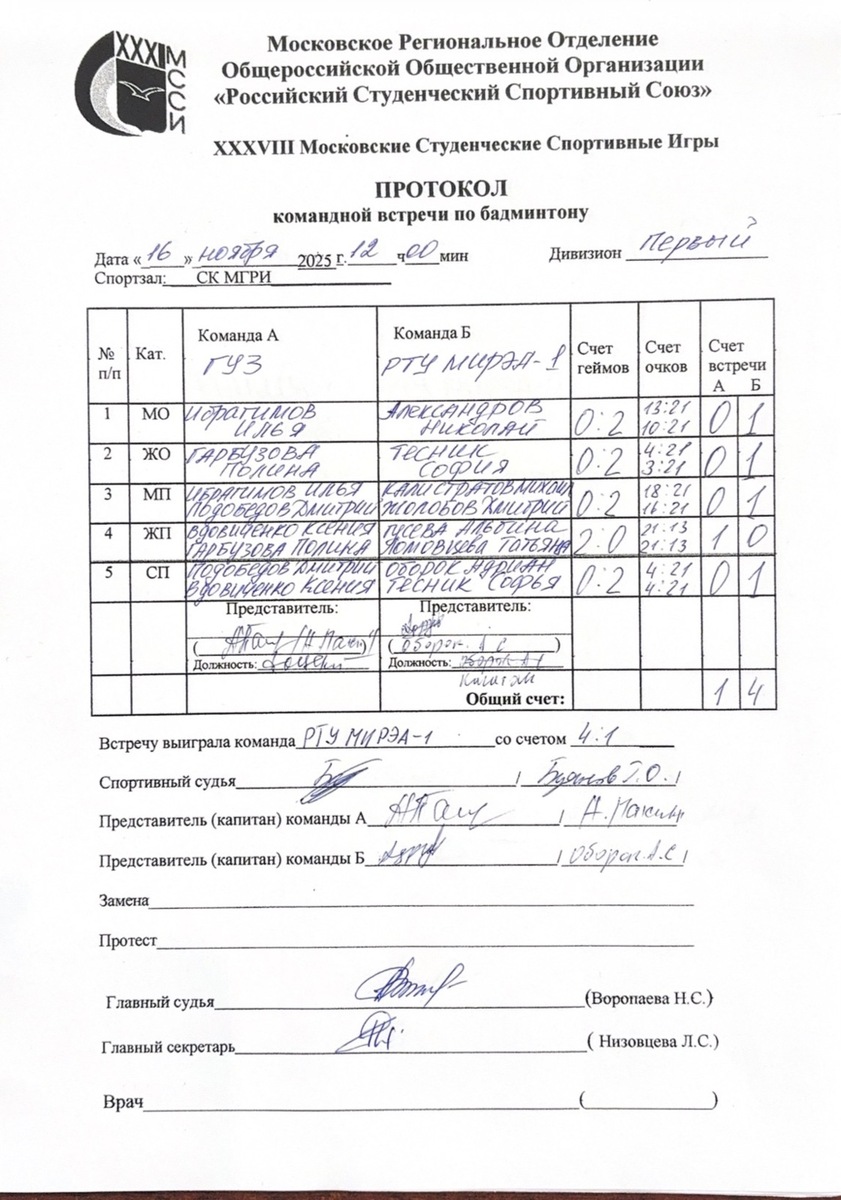 XXXI
МССИ
Московское Региональное Отделение
Общероссийской Общественной Организации
«Российский Студенческий Спортивный Союз»
XXXVIII Московские Студенческие Спортивные Игры
ПРОТОКОЛ
командной встречи по бадминтону
Дата «16» ноября 2025 г. 12 ч 00 мин Дивизион Первый
Спортзал: СК МГРИ
№ п/п Кат. Команда А ГУЗ Команда Б РТУ МИРЭА-1 Счет геймов Счет очков Счет встречи А Б
1 МО ИБРАГИМОВ ИЛЬЯ АЛЕКСАНДРОВ НИКОЛАЙ 0:2 13:21 10:21 0 1
2 ЖО ГАРБУЗОВА ПОЛИНА ТЕСНИК СОФИЯ 0:2 4:21 3:21 0 1
3 МП ИБРАГИМОВ ИЛЬЯ ПОДОБЕДОВ ДМИТРИЙ КАЛИСТРАТОВ МИХАИЛ ЖОЛОБОВ ДМИТРИЙ 0:2 18:21 16:21 0 1
4 ЖП ВДОВИЧЕНКО КСЕНИЯ ГАРБУЗОВА ПОЛИНА ГУСЕВА АЛЬБИНА ЛОМОВЦЕВА ТАТЬЯНА 2:0 21:13 21:13 1 0
5 СП ПОДОБЕДОВ ДМИТРИЙ ВДОВИЧЕНКО КСЕНИЯ ОБОРОК АДРИАН ТЕСНИК СОФЬЯ 0:2 4:21 4:21 0 1
Представитель: Представитель:
( ) (Оборок А С)
Должность: доцент Должность:
капитан
Общий счет: 1 4
Встречу выиграла команда РТУ МИРЭА-1 со счетом 4:1
Спортивный судья / /
Представитель (капитан) команды А / /
Представитель (капитан) команды Б / Оборок А.С /
Замена
Протест
Главный судья (Воропаева Н.С.)
Главный секретарь ( Низовцева Л.С.)
Врач ( )